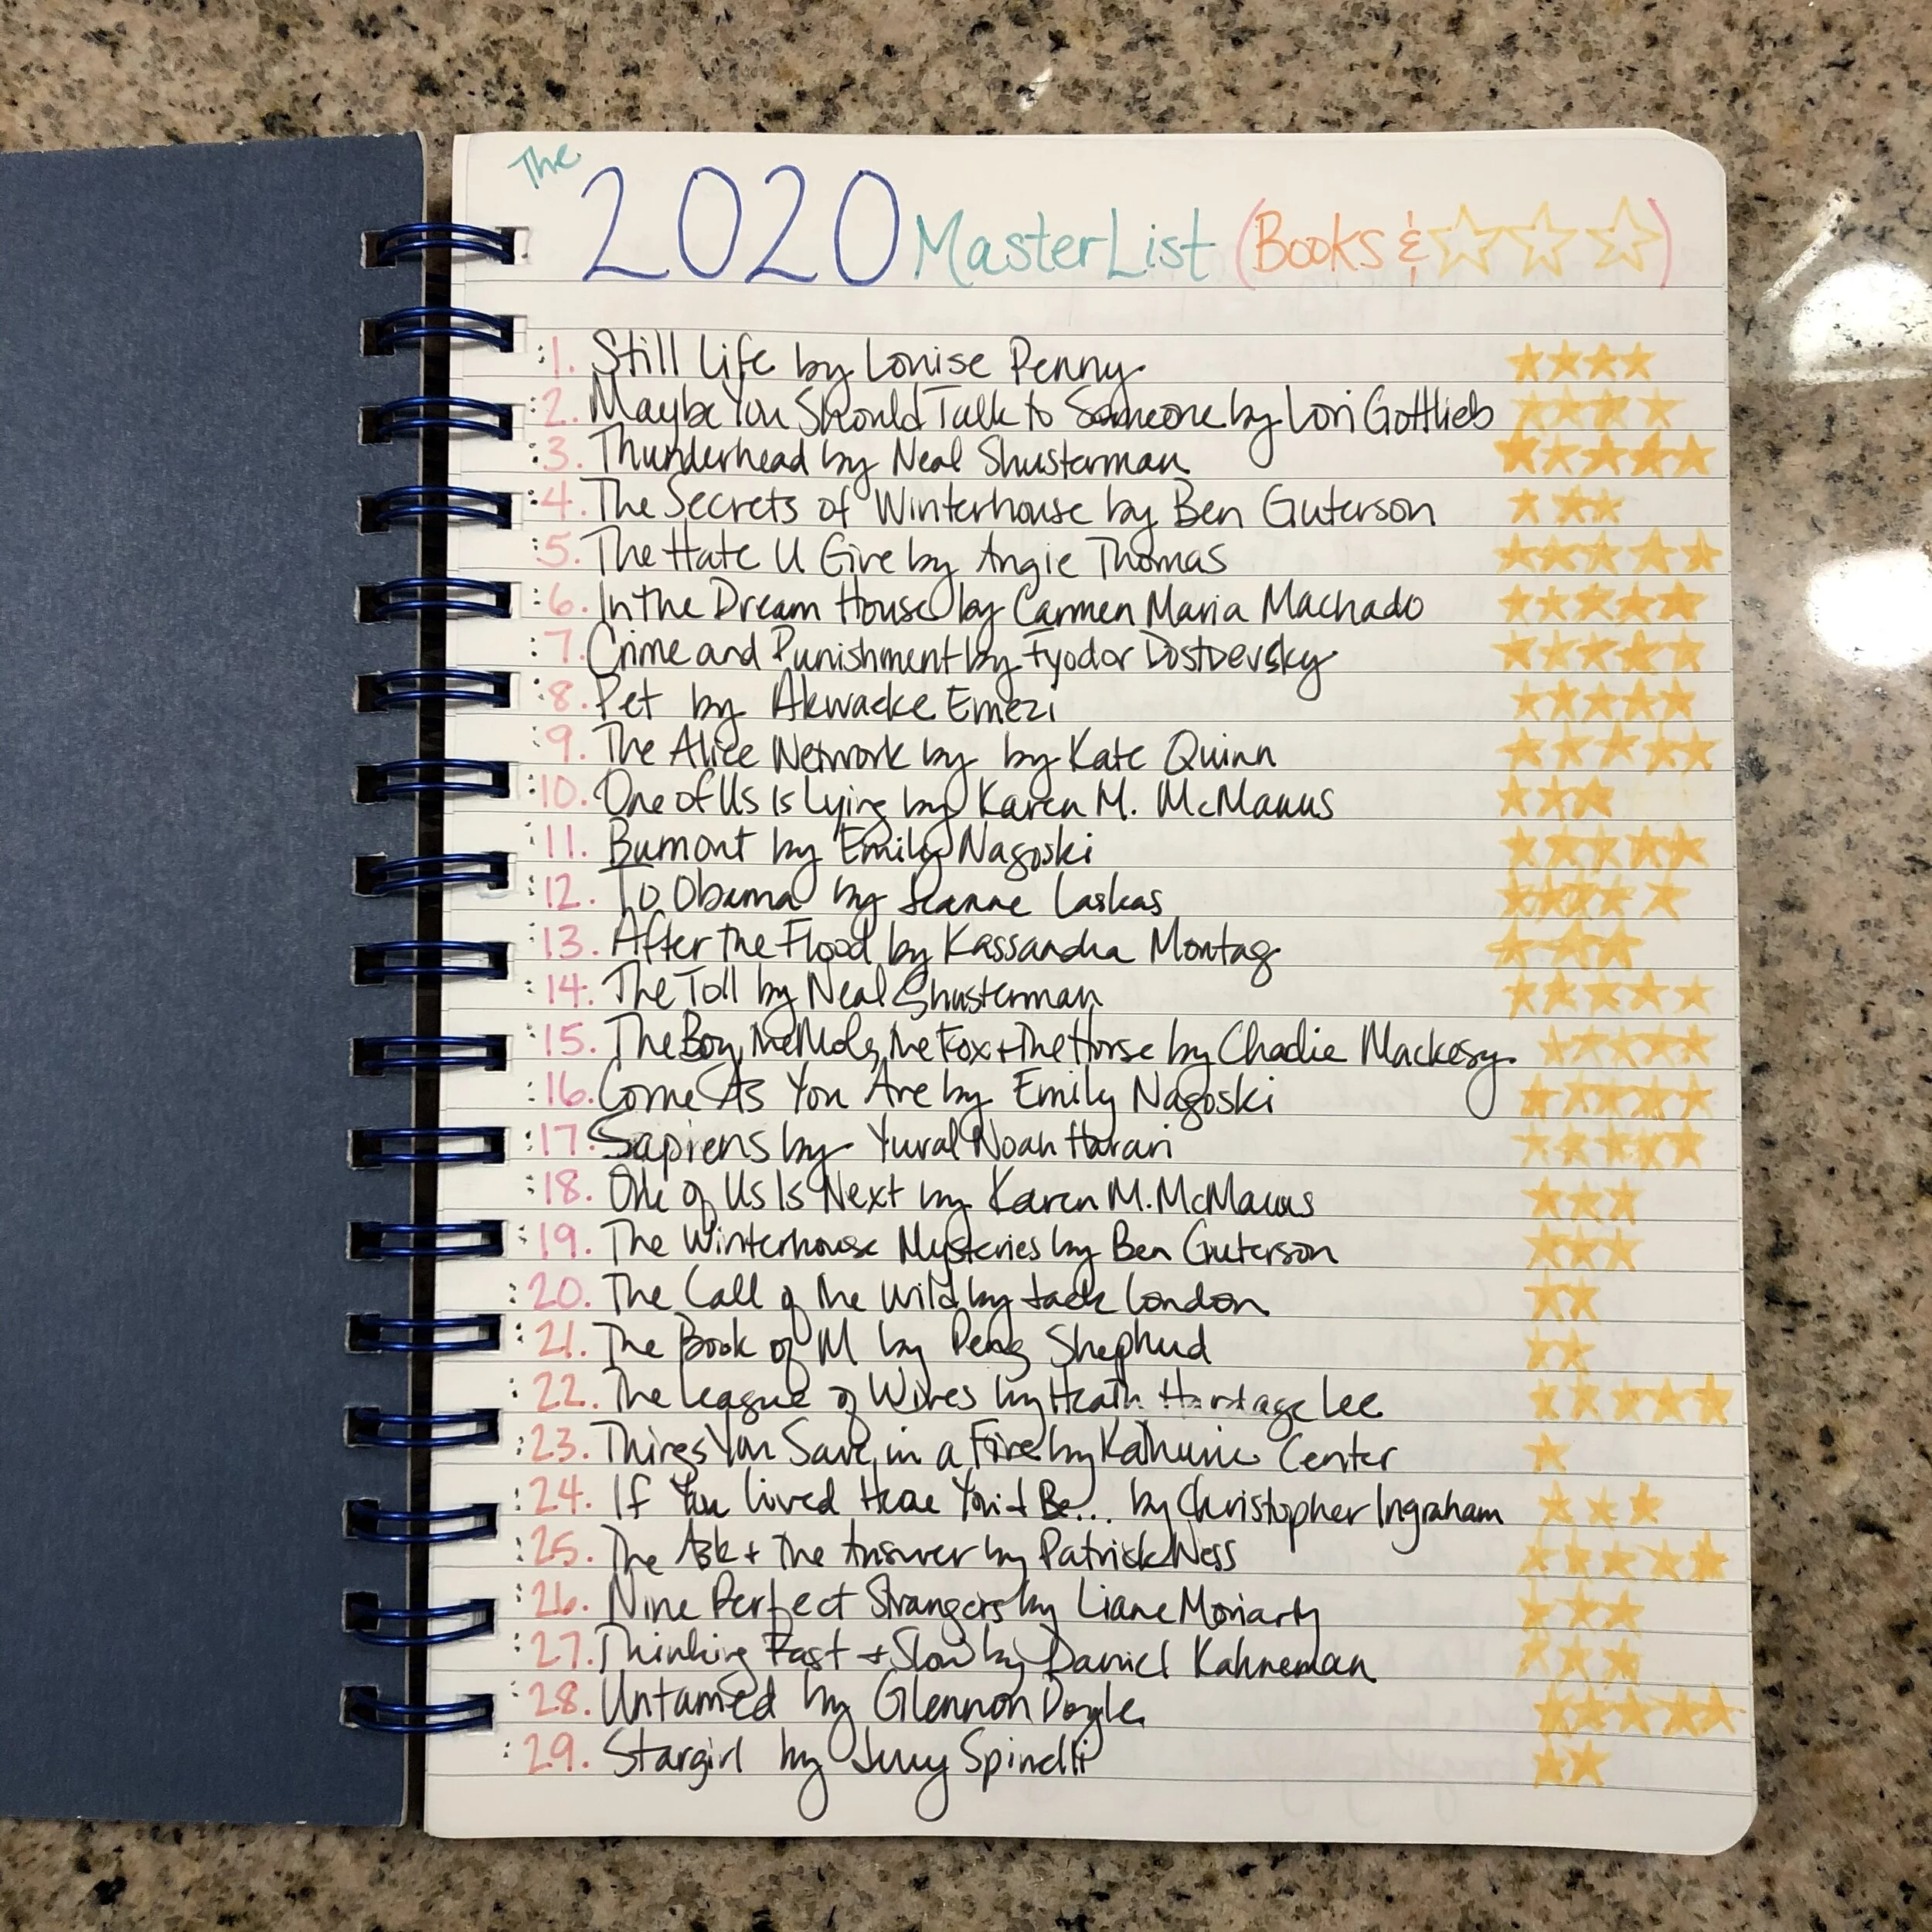 The 2020 MasterList (Books & ☆☆☆)
1. Still Life by Louise Penny ★★★★
2. Maybe You Should Talk to Someone by Lori Gottlieb ★★★★
3. Thunderhead by Neal Shusterman ★★★★★
4. The Secrets of Winterhouse by Ben Guterson ★★★
5. The Hate U Give by Angie Thomas ★★★★★
6. In the Dream House by Carmen Maria Machado ★★★★★
7. Crime and Punishment by Fyodor Dostoevsky ★★★★★
8. Pet by Akwaeke Emezi ★★★★★
9. The Alice Network by by Kate Quinn ★★★★★
10. One of Us Is Lying by Karen M. McManus ★★★
11. Burnout by Emily Nagoski ★★★★★
12. To Obama by Jeanne Laskas ★★★★
13. After the Flood by Kassandra Montag ★★★
14. The Toll by Neal Shusterman ★★★★★
15. The Boy, The Mole, The Fox + The Horse by Charlie Mackesy ★★★★★
16. Come As You Are by Emily Nagoski ★★★★★
17. Sapiens by Yuval Noah Harari ★★★★★
18. One of Us Is Next by Karen M. McManus ★★★
19. The Winterhouse Mysteries by Ben Guterson ★★★
20. The Call of the Wild by Jack London ★★
21. The Book of M by Peng Shepherd ★★
22. The League of Wives by Heath Hardage Lee ★★★★★
23. Things You Save in a Fire by Katherine Center ★
24. If You Lived Here You'd Be... by Christopher Ingraham ★★★
25. The Ask + The Answer by Patrick Ness ★★★★★
26. Nine Perfect Strangers by Liane Moriarty ★★★
27. Thinking Fast + Slow by Daniel Kahneman ★★★
28. Untamed by Glennon Doyle ★★★★★
29. Stargirl by Jerry Spinelli ★★